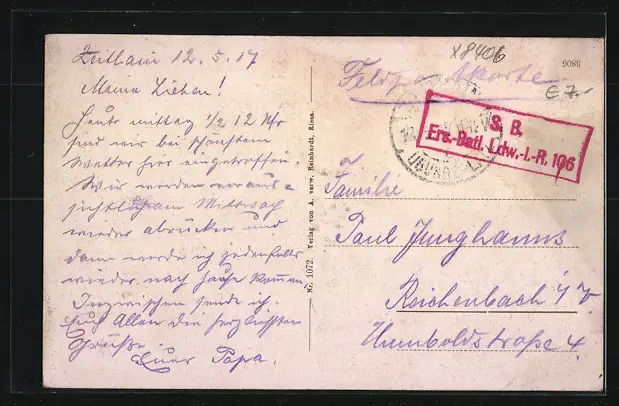 Zeithain 12.5.17
Meine Lieben!
Heute mittag 1/2 12 Uhr
sind wir bei schönstem
Wetter hier eingetroffen.
Wir werden voraus=
sichtlich am Mittwoch
wieder abrücken und
dann werde ich jedenfalls
wieder nach Hause kommen
Inzwischen sende ich
Euch Allen die herzlichsten
Grüße
Euer Papa.
Nr. 1072. Verlag von A. verw. Reinhardt, Riesa.
x8406
9088
€ 7.-
Feldpostkarte
S. B.
Ers.-Batl. Ldw.-I.-R. 106
a.
Familie
Paul Junghanns
Reichenbach i/V.
Humboldstraße 4.